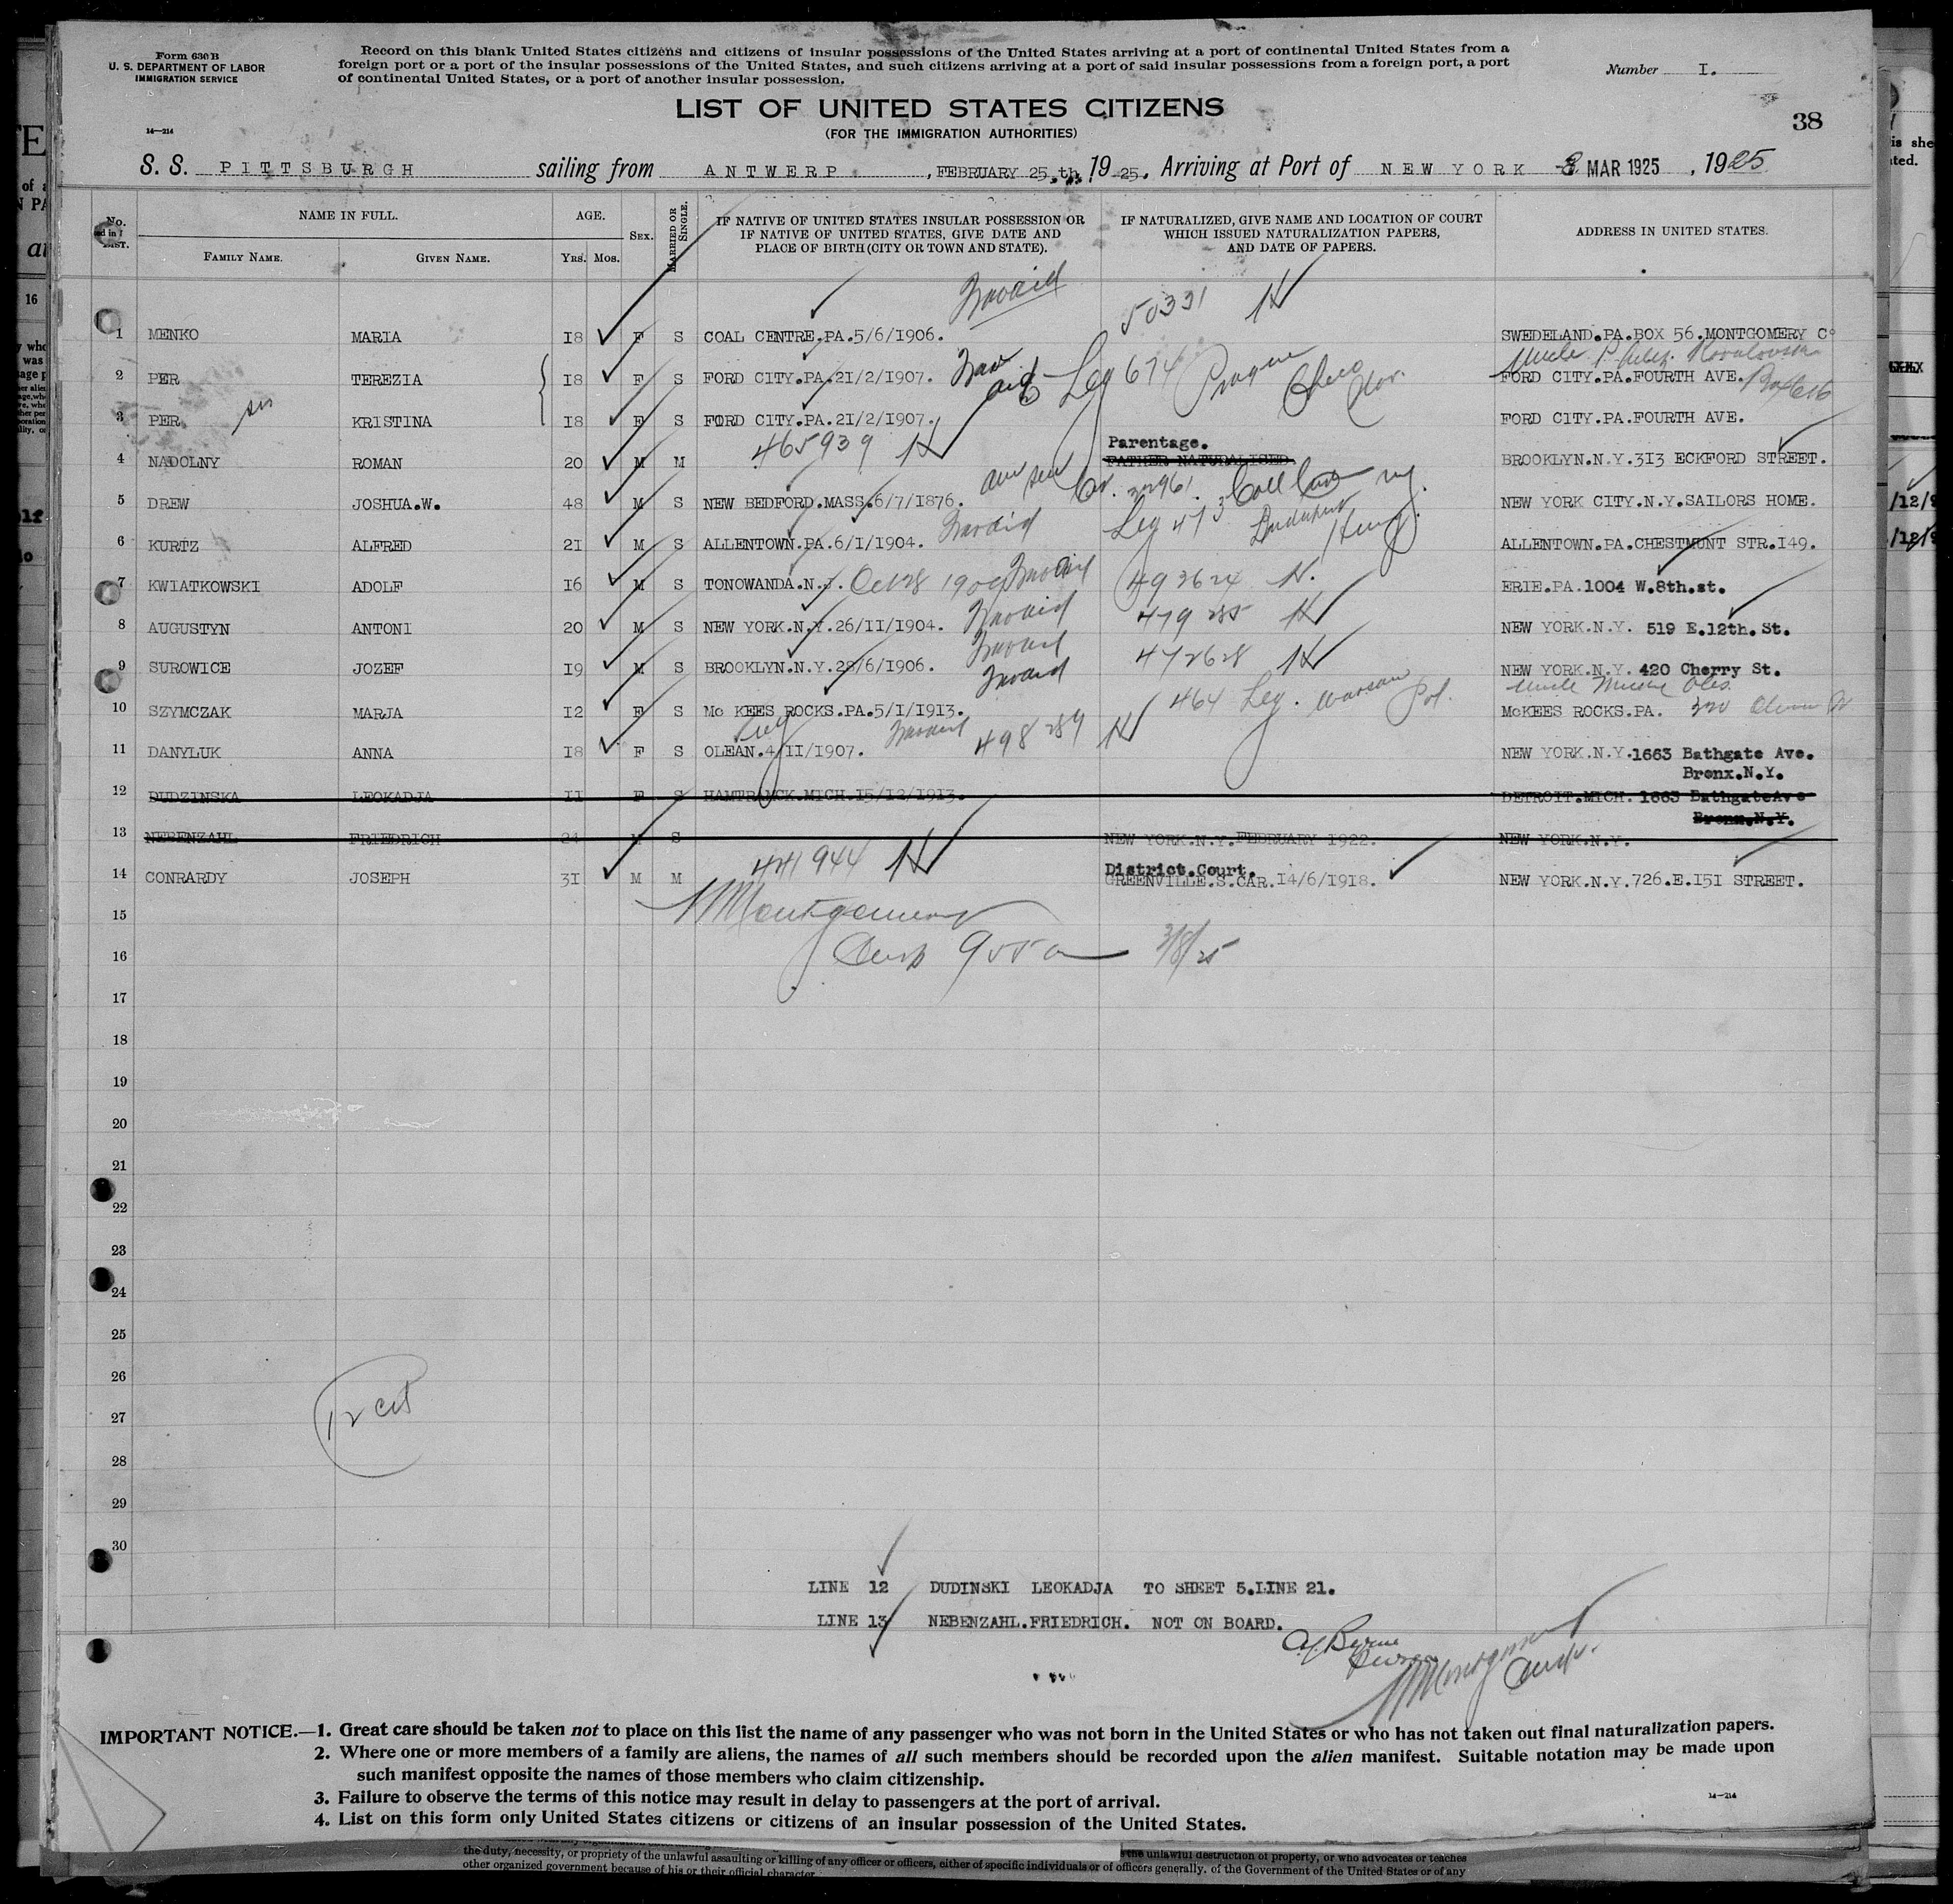 Form 630 B
U. S. DEPARTMENT OF LABOR
IMMIGRATION SERVICE
14—214
Record on this blank United States citizens and citizens of insular possessions of the United States arriving at a port of continental United States from a
foreign port or a port of the insular possessions of the United States, and such citizens arriving at a port of said insular possessions from a foreign port, a port
of continental United States, or a port of another insular possession.
Number I.
LIST OF UNITED STATES CITIZENS
(FOR THE IMMIGRATION AUTHORITIES)
38
S. S. PITTSBURGH sailing from ANTWERP, FEBRUARY 25.th 1925. Arriving at Port of NEW YORK 8 MAR 1925, 1925
No. LIST.
NAME IN FULL.
FAMILY NAME. GIVEN NAME.
AGE.
YRS. MOS.
SEX.
MARRIED OR SINGLE.
IF NATIVE OF UNITED STATES INSULAR POSSESSION OR
IF NATIVE OF UNITED STATES, GIVE DATE AND
PLACE OF BIRTH (CITY OR TOWN AND STATE).
IF NATURALIZED, GIVE NAME AND LOCATION OF COURT
WHICH ISSUED NATURALIZATION PAPERS,
AND DATE OF PAPERS.
ADDRESS IN UNITED STATES.
50331
1 MENKO MARIA 18 F S COAL CENTRE.PA.5/6/1906. SWEDELAND.PA.BOX 56.MONTGOMERY Co
Uncle
2 PER TEREZIA 18 F S FORD CITY.PA.21/2/1907. Leg 674 Prague FORD CITY.PA.FOURTH AVE. Box 616
3 PER sis KRISTINA 18 F S FORD CITY.PA.21/2/1907. FORD CITY.PA.FOURTH AVE.
465939 Parentage.
4 NADOLNY ROMAN 20 M M FATHER NATURALISED. BROOKLYN.N.Y.313 ECKFORD STREET.
5 DREW JOSHUA.W. 48 M S NEW BEDFORD.MASS.6/7/1876. NEW YORK CITY.N.Y.SAILORS HOME.
Leg 473 Budapest Hung
6 KURTZ ALFRED 21 M S ALLENTOWN.PA.6/1/1904. ALLENTOWN.PA.CHESTMUNT STR.149.
7 KWIATKOWSKI ADOLF 16 M S TONOWANDA.N.J. Oct 28 1908 492624 ERIE.PA.1004 W.8th.st.
8 AUGUSTYN ANTONI 20 M S NEW YORK.N.Y.26/11/1904. 479285 NEW YORK.N.Y. 519 E.12th. St.
9 SUROWICE JOZEF 19 M S BROOKLYN.N.Y.28/6/1906. 472628 NEW YORK.N.Y. 420 Cherry St.
464 Leg. Warsaw Pol. Uncle
10 SZYMCZAK MARJA 12 F S Mc KEES ROCKS.PA.5/1/1913. McKEES ROCKS.PA. 320
498289
11 DANYLUK ANNA 18 F S OLEAN.4/11/1907. NEW YORK.N.Y.1663 Bathgate Ave.
Bronx.N.Y.
12 DUDZINSKA LEOKADJA 11 F S HAMTRAMCK.MICH.15/12/1913. DETROIT.MICH. 1663 BathgateAve
Bronx.N.Y.
13 NEBENZAHL FRIEDRICH 24 M S NEW YORK.N.Y.FEBRUARY 1922. NEW YORK.N.Y.
441944 District.Court.
14 CONRARDY JOSEPH 31 M M GREENVILLE.S.CAR.14/6/1918. NEW YORK.N.Y.726.E.151 STREET.
15 Montgomery
16 3/8/25
17
18
19
20
21
22
23
24
25
26
27 12 cit
28
29
30
LINE 12 DUDINSKI LEOKADJA TO SHEET 5.LINE 21.
LINE 13 NEBENZAHL.FRIEDRICH. NOT ON BOARD.
Byrne
Montgomery
IMPORTANT NOTICE.—1. Great care should be taken not to place on this list the name of any passenger who was not born in the United States or who has not taken out final naturalization papers.
2. Where one or more members of a family are aliens, the names of all such members should be recorded upon the alien manifest. Suitable notation may be made upon
such manifest opposite the names of those members who claim citizenship.
3. Failure to observe the terms of this notice may result in delay to passengers at the port of arrival.
4. List on this form only United States citizens or citizens of an insular possession of the United States.
14—214
the duty, necessity, or propriety of the unlawful assaulting or killing of any officer or officers, either of specific individuals or of officers generally, of the Government of the United States or of any
other organized government because of his or their official character
the unlawful destruction of property, or who advocates or teaches